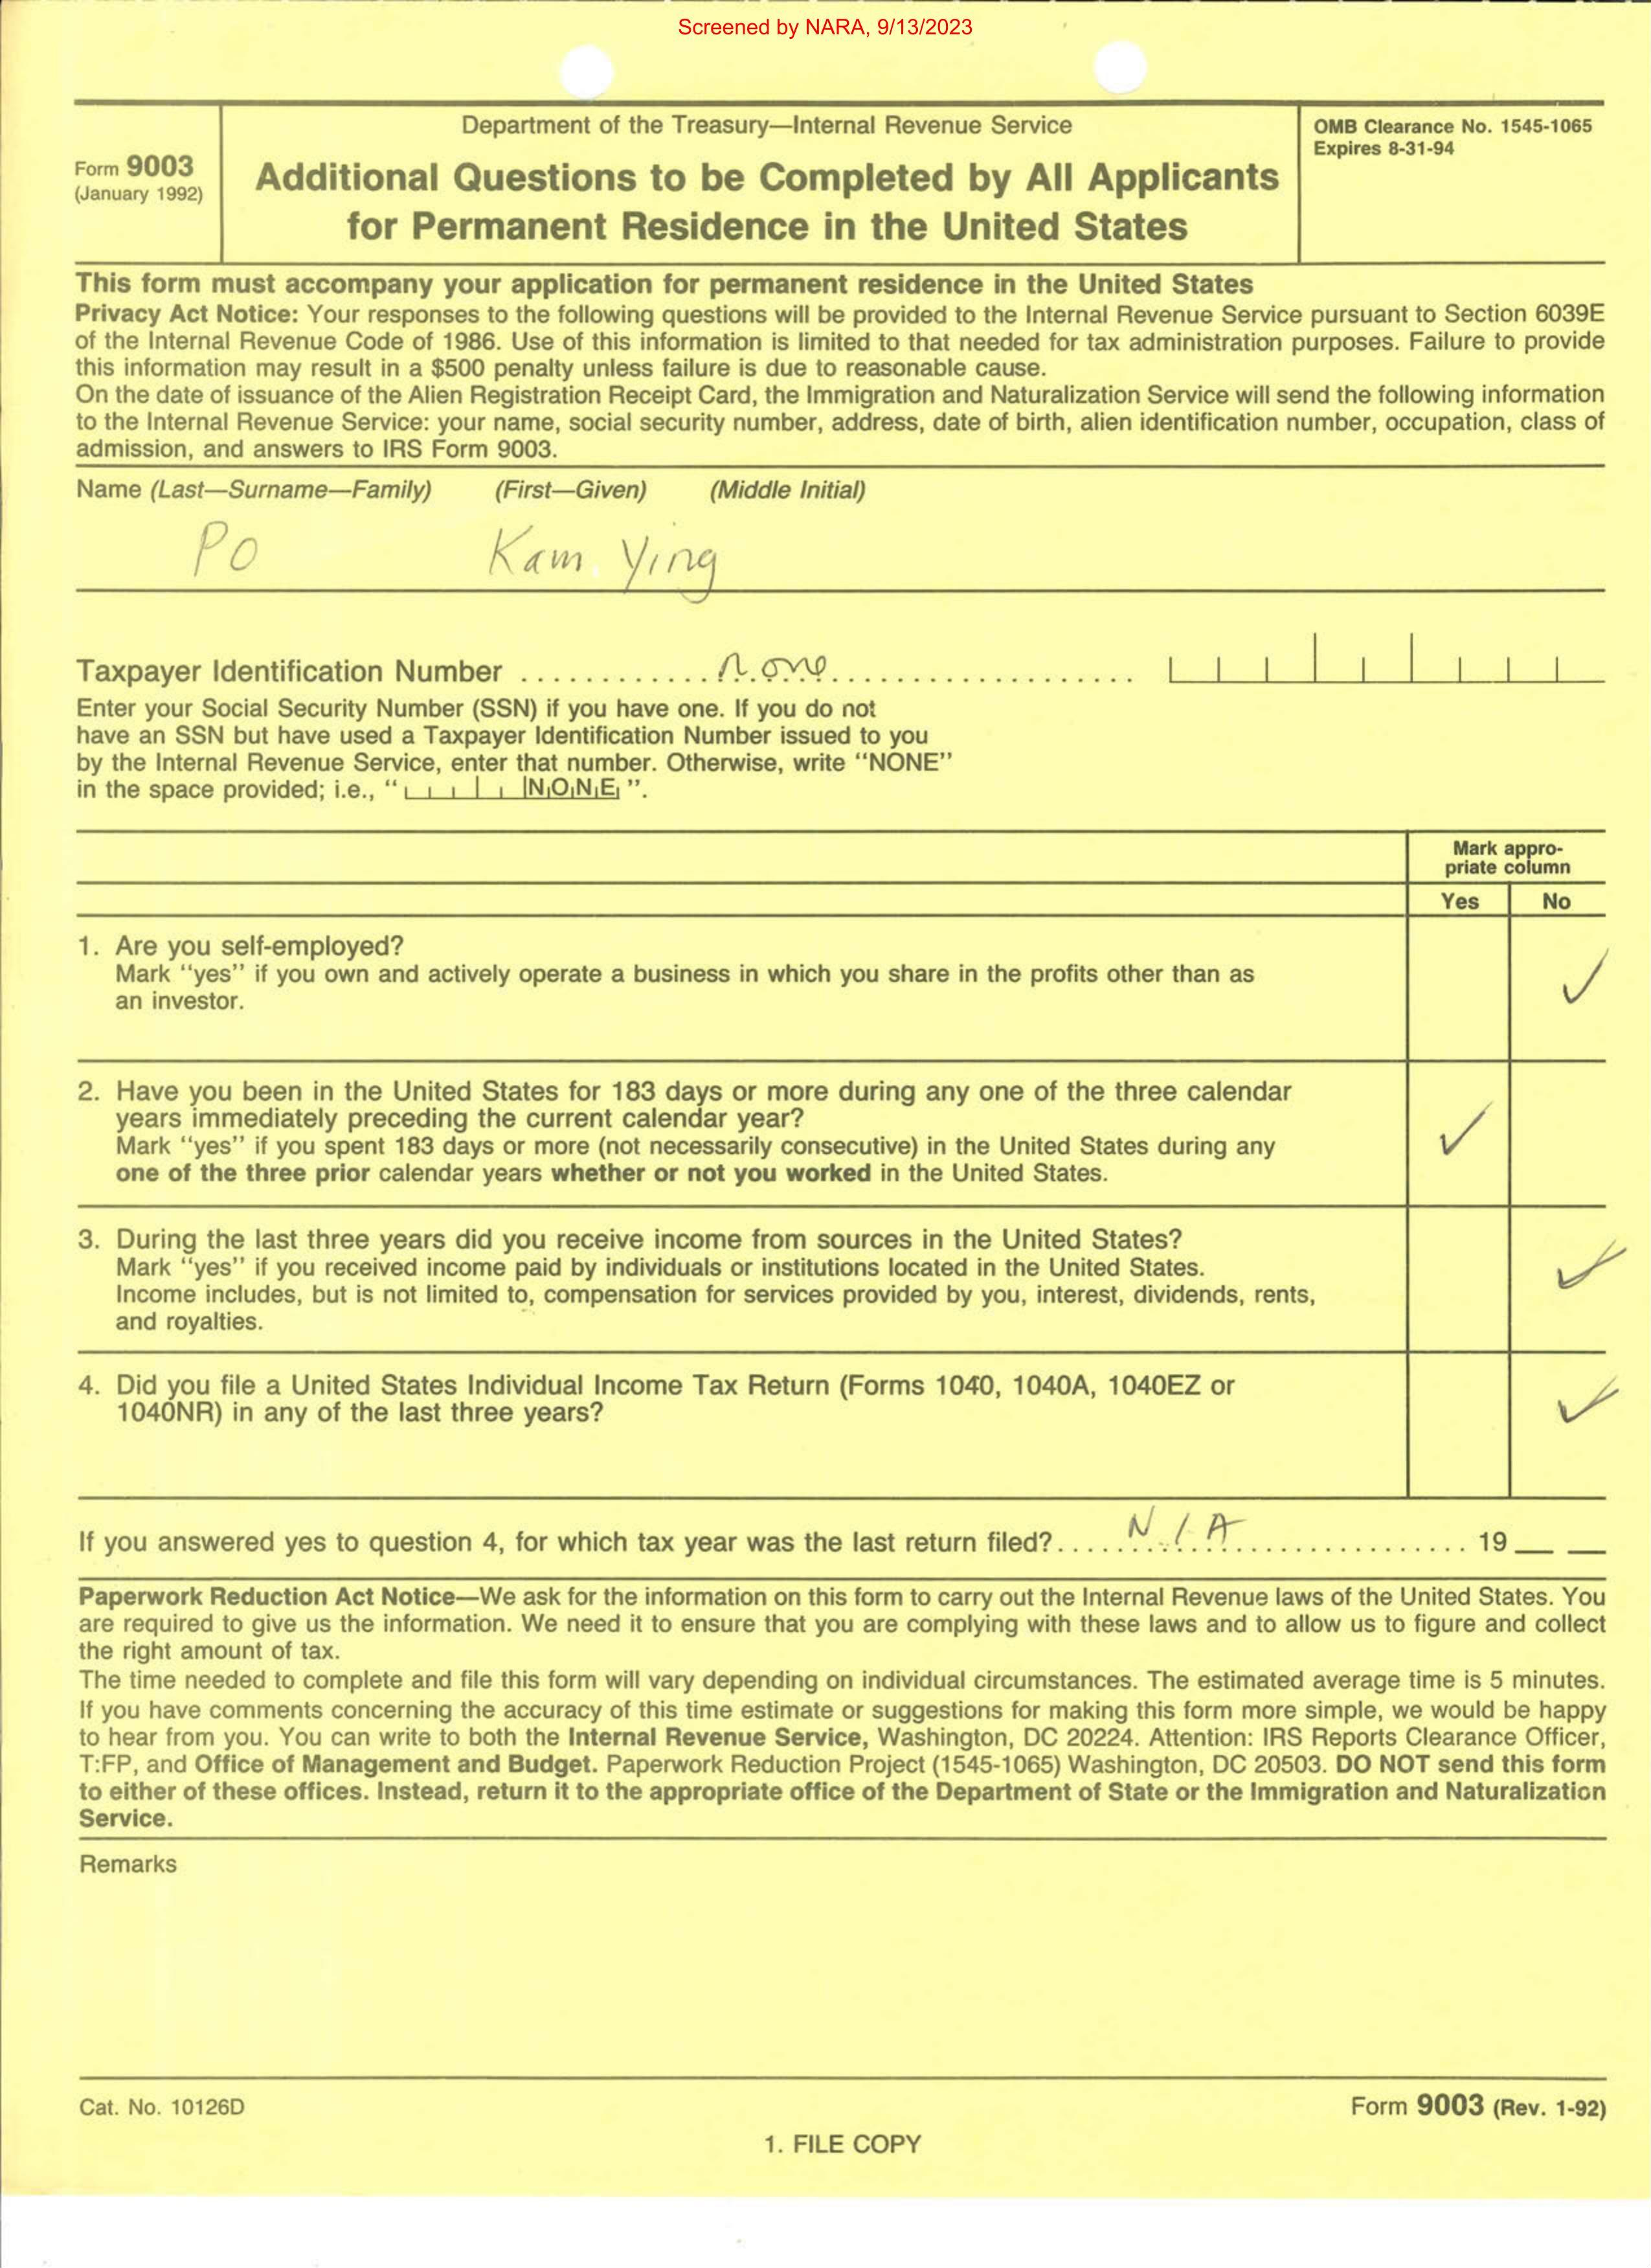 Screened by NARA, 9/13/2023
Department of the Treasury—Internal Revenue Service
OMB Clearance No. 1545-1065
Expires 8-31-94
Form 9003
(January 1992)
Additional Questions to be Completed by All Applicants
for Permanent Residence in the United States
This form must accompany your application for permanent residence in the United States
Privacy Act Notice: Your responses to the following questions will be provided to the Internal Revenue Service pursuant to Section 6039E
of the Internal Revenue Code of 1986. Use of this information is limited to that needed for tax administration purposes. Failure to provide
this information may result in a $500 penalty unless failure is due to reasonable cause.
On the date of issuance of the Alien Registration Receipt Card, the Immigration and Naturalization Service will send the following information
to the Internal Revenue Service: your name, social security number, address, date of birth, alien identification number, occupation, class of
admission, and answers to IRS Form 9003.
Name (Last—Surname—Family) (First—Given) (Middle Initial)
PO Kam Ying
Taxpayer Identification Number none
Enter your Social Security Number (SSN) if you have one. If you do not
have an SSN but have used a Taxpayer Identification Number issued to you
by the Internal Revenue Service, enter that number. Otherwise, write "NONE"
in the space provided; i.e., "NONE".
Mark appro-
priate column
Yes No
1. Are you self-employed?
Mark "yes" if you own and actively operate a business in which you share in the profits other than as
an investor.
✓
2. Have you been in the United States for 183 days or more during any one of the three calendar
years immediately preceding the current calendar year?
Mark "yes" if you spent 183 days or more (not necessarily consecutive) in the United States during any
one of the three prior calendar years whether or not you worked in the United States.
✓
3. During the last three years did you receive income from sources in the United States?
Mark "yes" if you received income paid by individuals or institutions located in the United States.
Income includes, but is not limited to, compensation for services provided by you, interest, dividends, rents,
and royalties.
✓
4. Did you file a United States Individual Income Tax Return (Forms 1040, 1040A, 1040EZ or
1040NR) in any of the last three years?
✓
If you answered yes to question 4, for which tax year was the last return filed? N/A 19 __ __
Paperwork Reduction Act Notice—We ask for the information on this form to carry out the Internal Revenue laws of the United States. You
are required to give us the information. We need it to ensure that you are complying with these laws and to allow us to figure and collect
the right amount of tax.
The time needed to complete and file this form will vary depending on individual circumstances. The estimated average time is 5 minutes.
If you have comments concerning the accuracy of this time estimate or suggestions for making this form more simple, we would be happy
to hear from you. You can write to both the Internal Revenue Service, Washington, DC 20224. Attention: IRS Reports Clearance Officer,
T:FP, and Office of Management and Budget. Paperwork Reduction Project (1545-1065) Washington, DC 20503. DO NOT send this form
to either of these offices. Instead, return it to the appropriate office of the Department of State or the Immigration and Naturalization
Service.
Remarks
Cat. No. 10126D
Form 9003 (Rev. 1-92)
1. FILE COPY